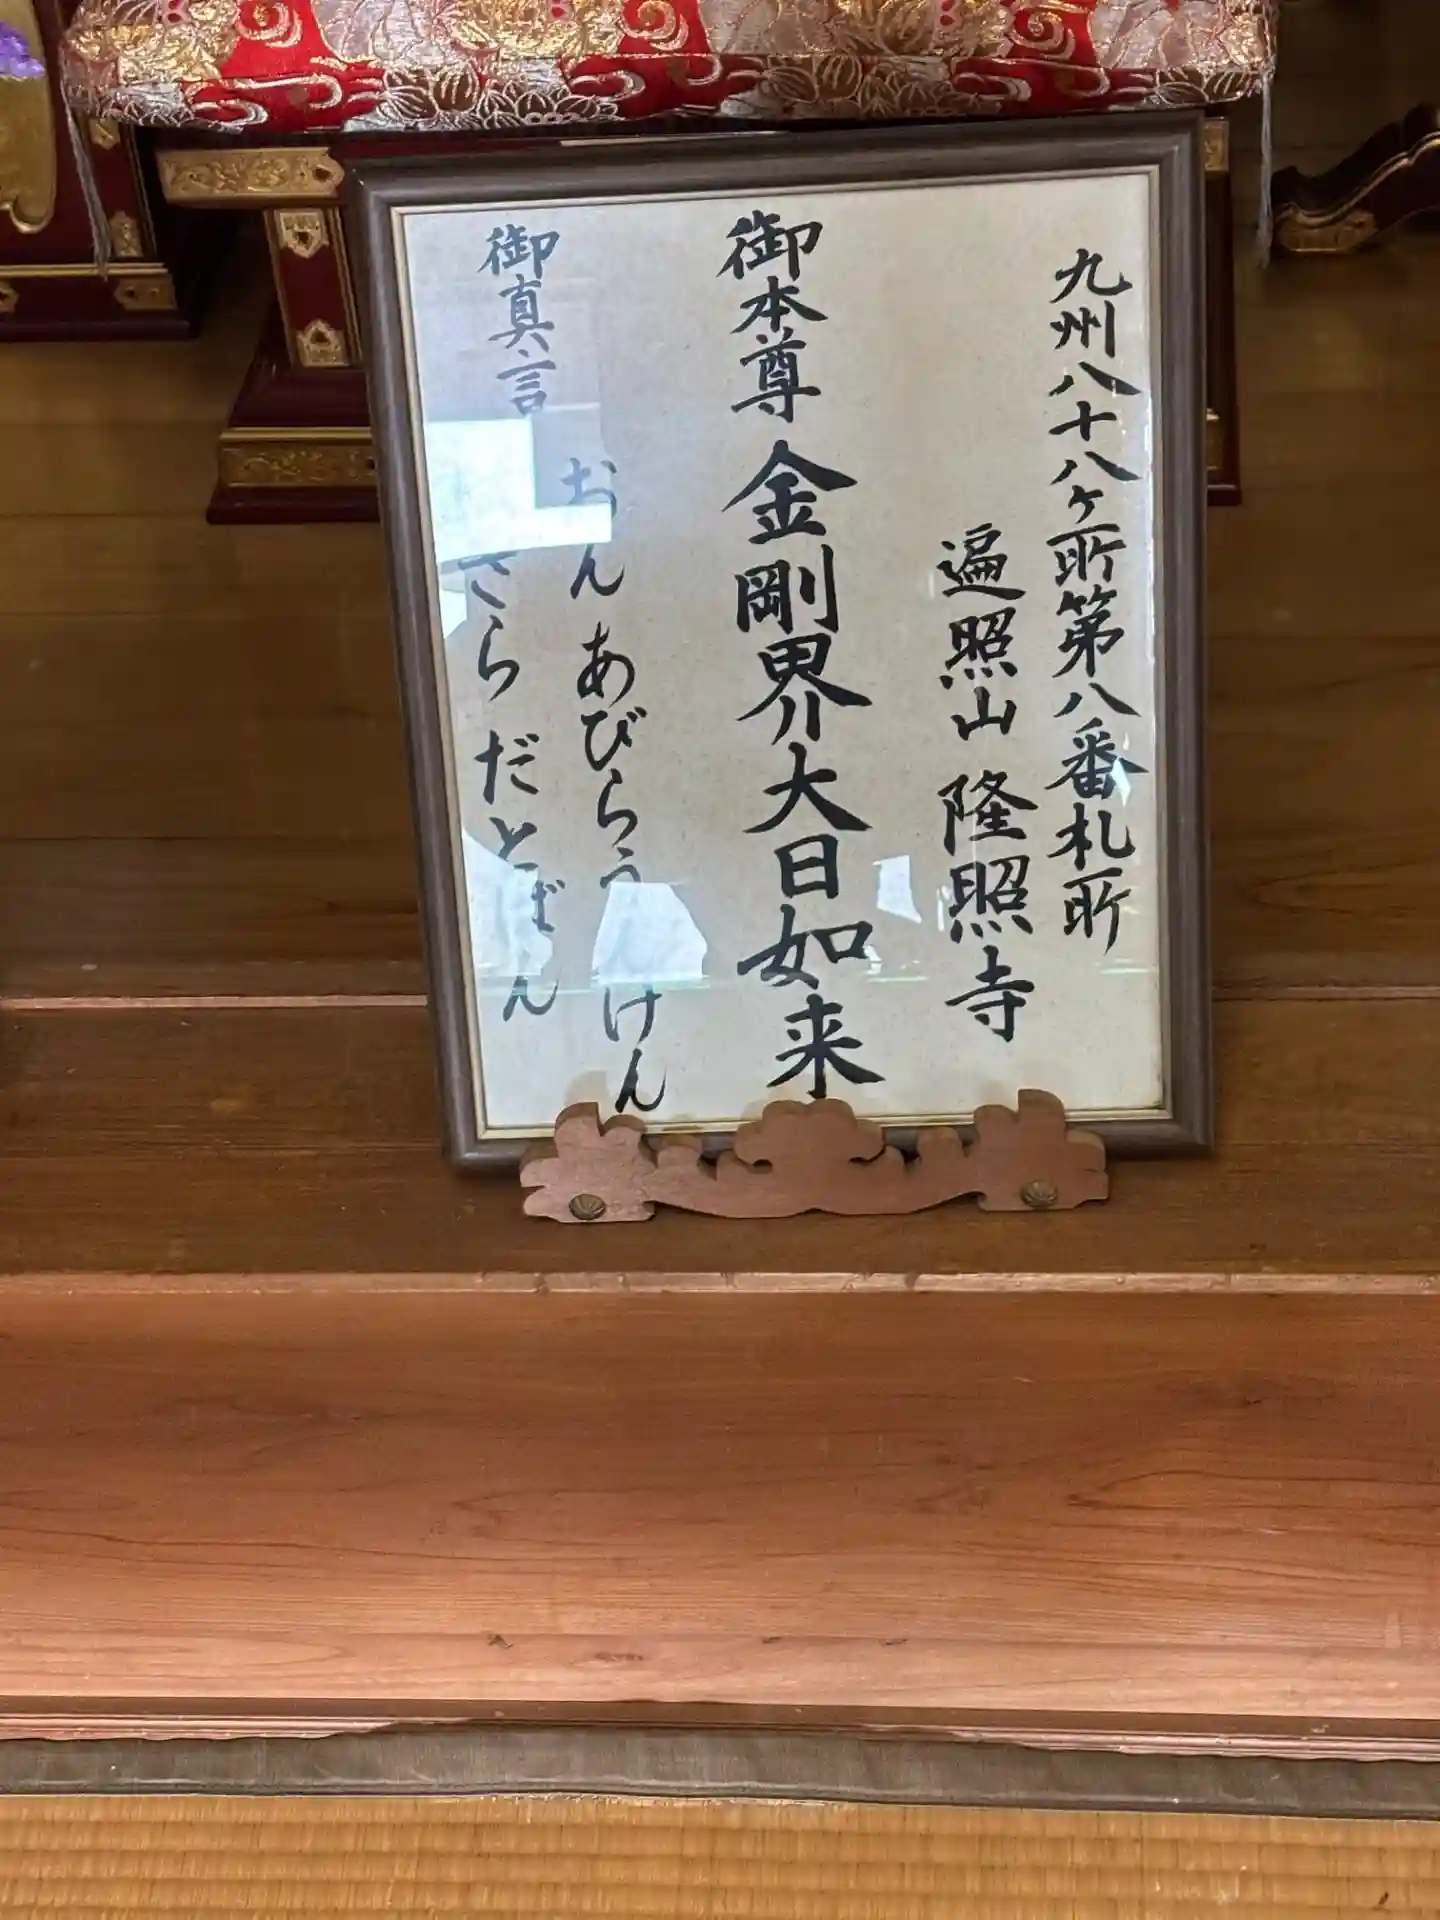 九州八十八ヶ所第八番札所
遍照山 隆照寺
御本尊 金剛界大日如来
御真言 おん あびらうんけん
ざら だとばん